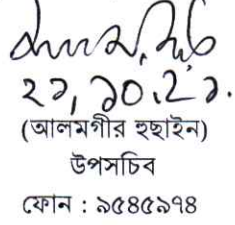 ২১,১০.২১.
(আলমগীর হুছাইন)
উপসচিব
ফোন : ৯৫৪৫৯৭৪